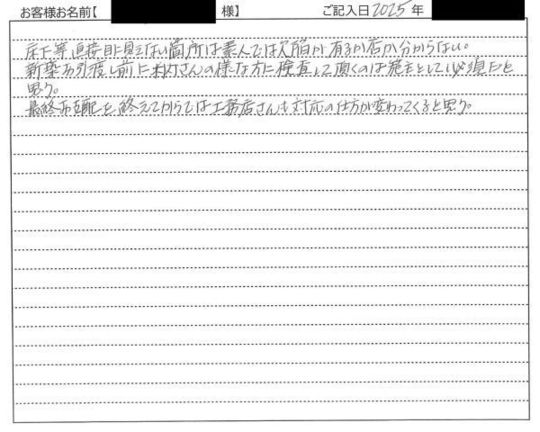 お客様お名前【 様】 ご記入日 2025 年
床下等直接目に見えない箇所は素人では欠陥が有るか否か分からない。
新築お引渡し前に村さんの様な方に検査して頂くのは施主として必須だと
思う。
最終支配を終えてからでは工務店さんも対応の仕方が変わってくると思う。